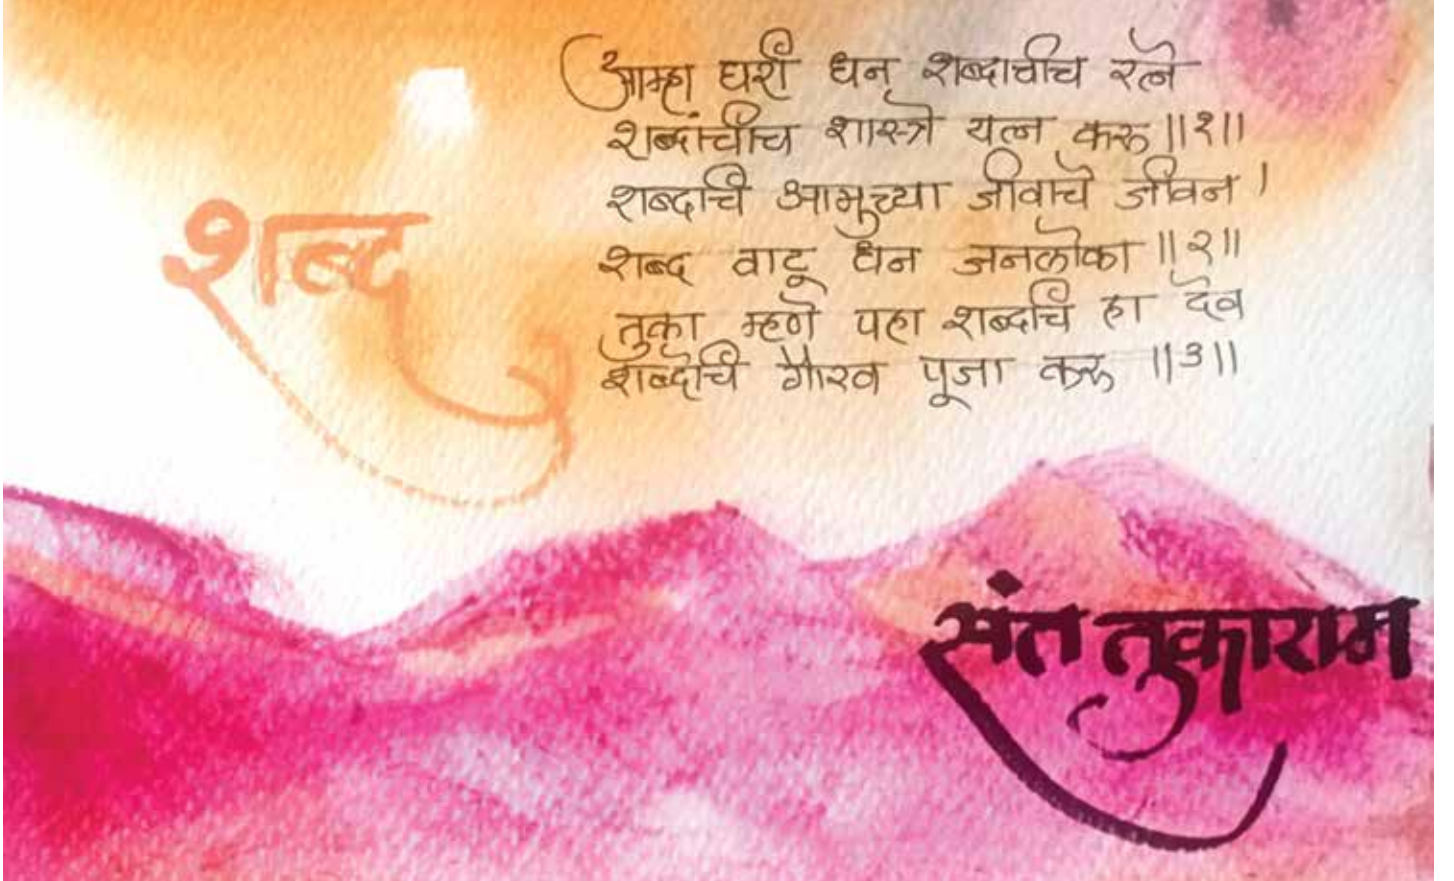 शब्द
आम्हा घरी धन शब्दाचीच रत्ने
शब्दांचीच शास्त्रे यत्न करू ||१||
शब्दचि आमुच्या जीवाचे जीवन |
शब्द वाटू धन जनलोका ||२||
तुका म्हणे पहा शब्दचि हा देव
शब्देचि गौरव पूजा करू ||३||
संत तुकाराम